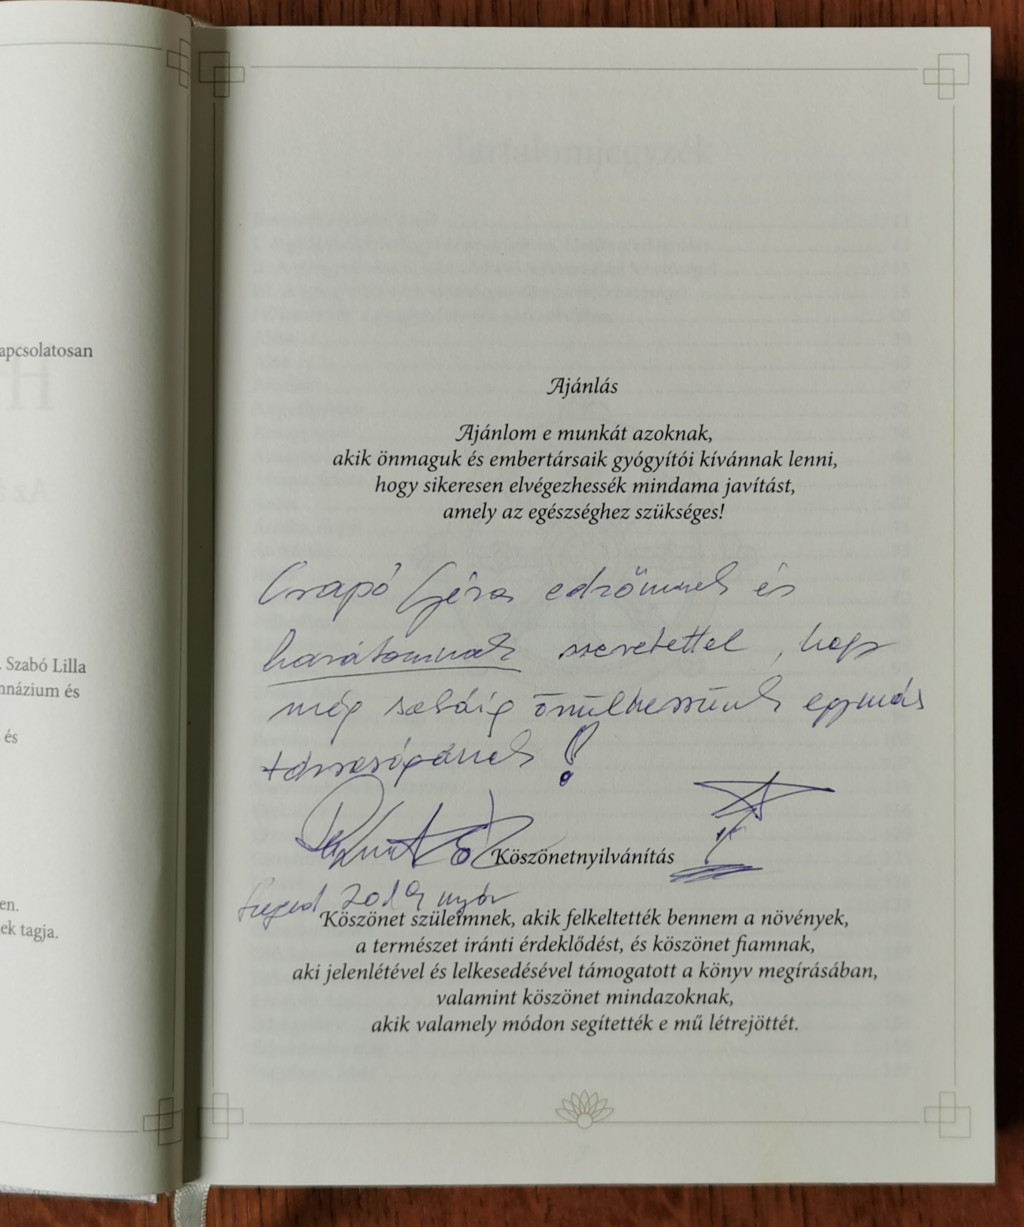 apcsolatosan
. Szabó Lilla
nnázium és
és
en.
ek tagja.
Tartalomjegyzék
Ajánlás
Ajánlom e munkát azoknak,
akik önmaguk és embertársaik gyógyítói kívánnak lenni,
hogy sikeresen elvégezhessék mindama javítást,
amely az egészséghez szükséges!
Csapó Géza edzőmnek és
barátomnak szeretettel, hogy
még sokáig örülhessünk egymás
társaságának!
Köszönetnyilvánítás
Szeged 2019 nyár
Köszönet szüleimnek, akik felkeltették bennem a növények,
a természet iránti érdeklődést, és köszönet fiamnak,
aki jelenlétével és lelkesedésével támogatott a könyv megírásában,
valamint köszönet mindazoknak,
akik valamely módon segítették e mű létrejöttét.